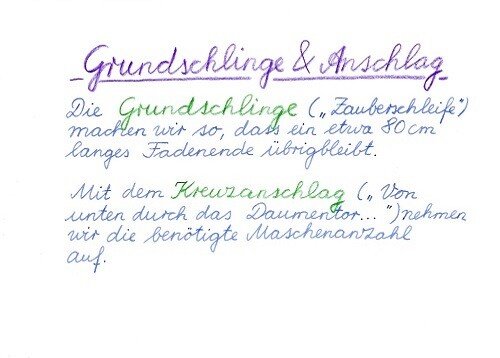 Grundschlinge & Anschlag
Die Grundschlinge („Zauberschleife")
machen wir so, dass ein etwa 80cm
langes Fadenende übrigbleibt.
Mit dem Kreuzanschlag („Von
unten durch das Daumentor...") nehmen
wir die benötigte Maschenanzahl
auf.